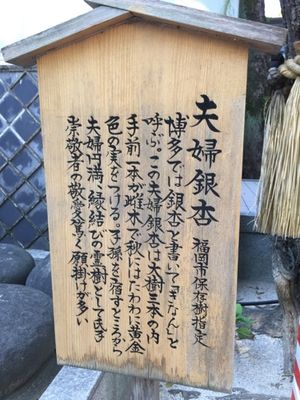 夫婦銀杏 福岡市保存樹指定
博多では銀杏と書いて「ぎなん」と
呼ぶ。この夫婦銀杏は大樹三本の内
手前一本が雌木で秋にはたわわに黄金
色の実をつける。子孫を宿すところから
夫婦円満、縁結びの霊樹として氏子
崇敬者の敬愛篤く願掛けが多い